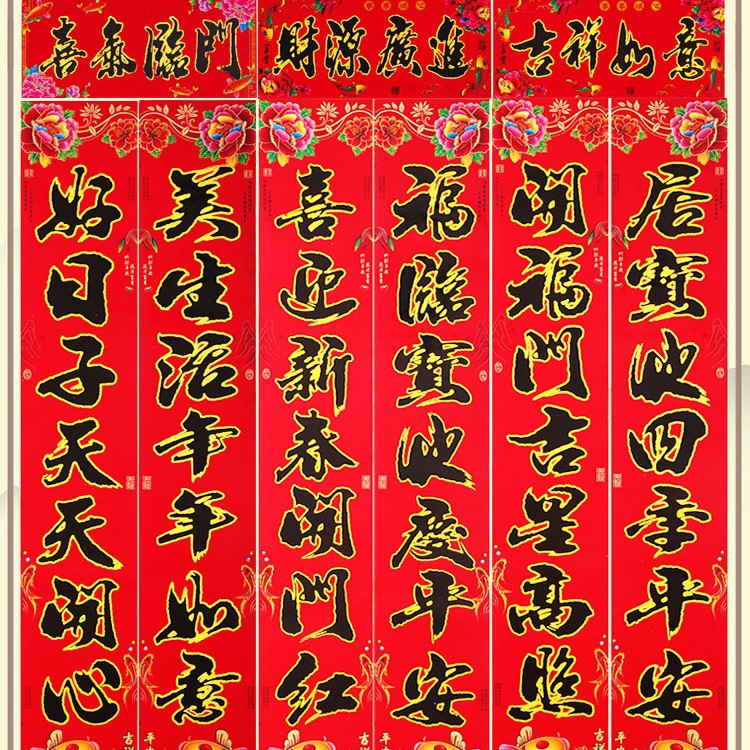 喜氣臨門
財源廣進
吉祥如意
好日子天天開心
美生活年年如意
喜迎新春開門红
福臨寶地慶平安
開福門吉星高照
居寶地四季平安